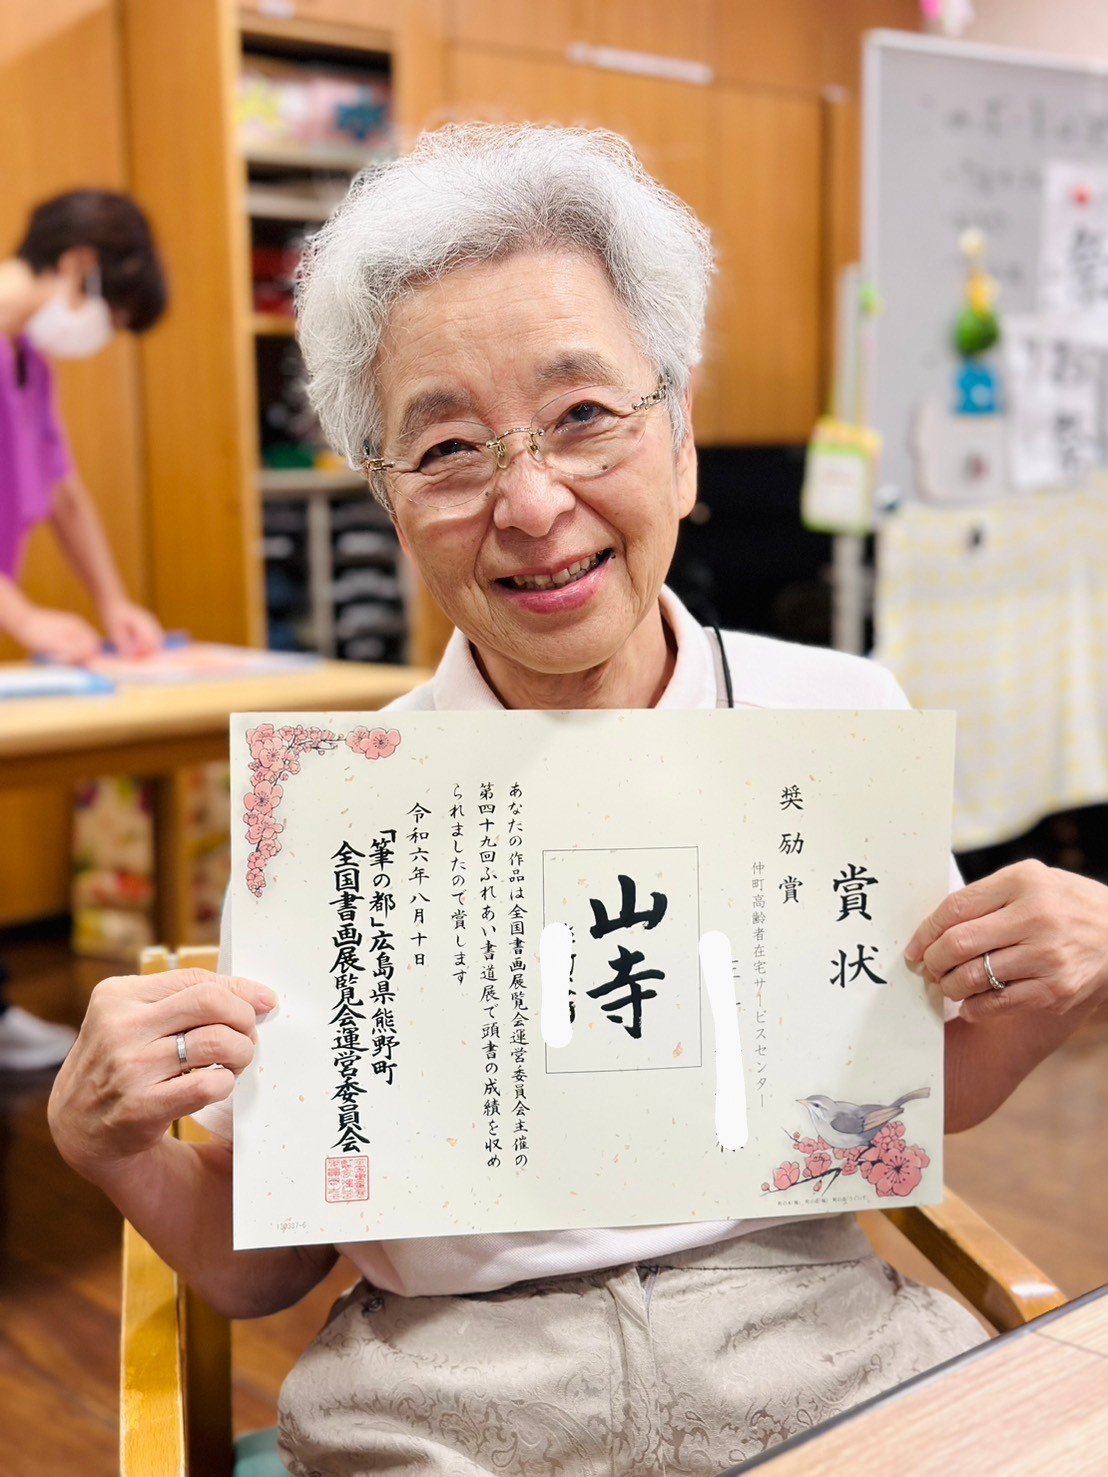 賞状
奨励賞
仲町高齢者在宅サービスセンター
山寺
あなたの作品は全国書画展覧会運営委員会主催の
第四十九回ふれあい書道展で頭書の成績を収め
られましたので賞します
令和六年八月十日
「筆の都」広島県熊野町
全国書画展覧会運営委員会